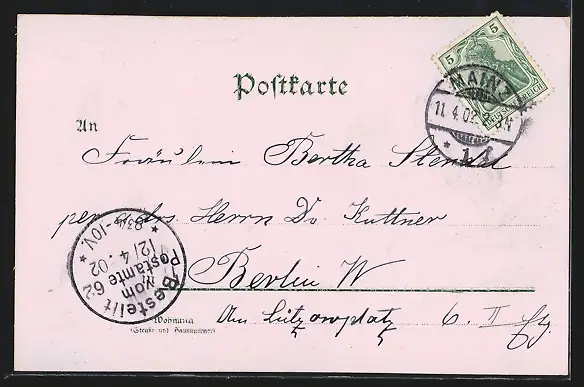 Postkarte
5 5
MAINZ
11.4.02
* 1 *
An
Fräulein Bertha Stendal
per Adrs. Herrn Dr. Kuttner
Berlin W
Am Lützowplatz 6. II
Wohnung
(Straße und Hausnummer)
Bestellt
vom
Postamte 62
12/4.02
* 8¾-10V. *